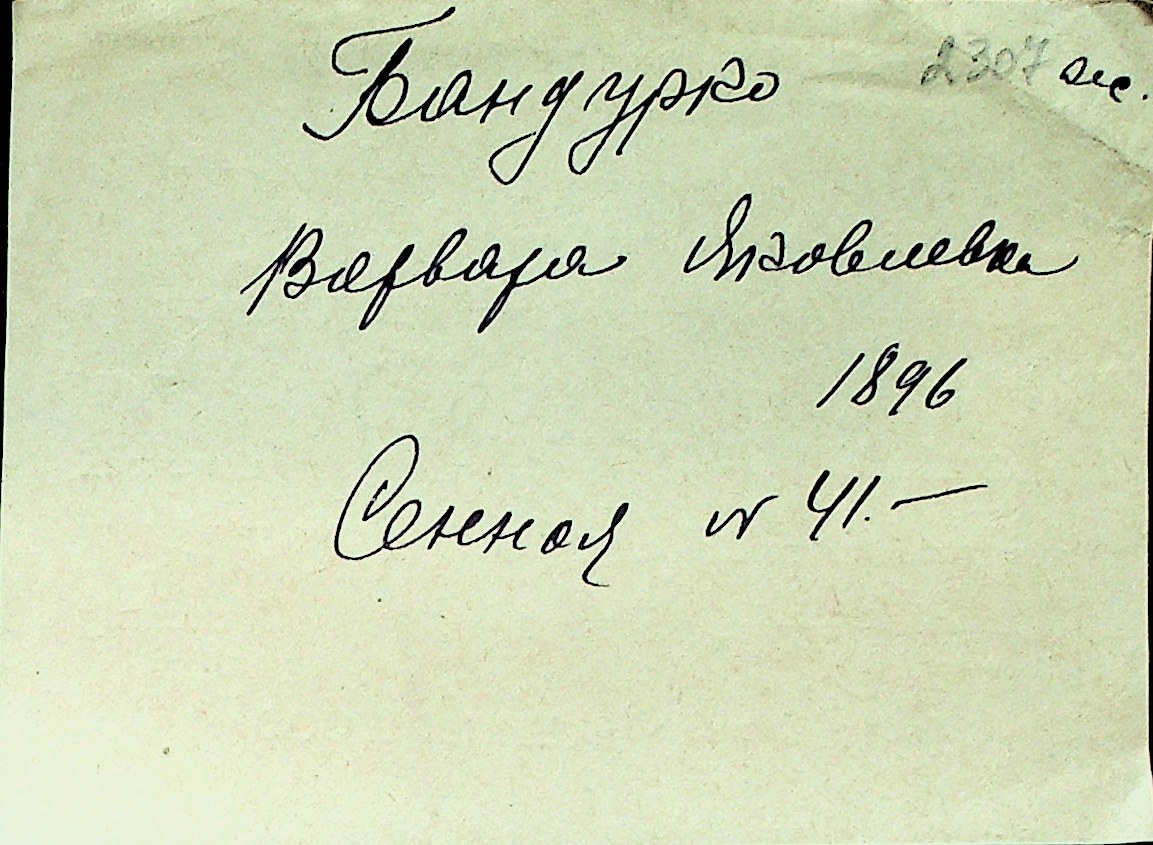 Бандурко 2307
Варвара Яковлевна
1896
Сенная № 41.—